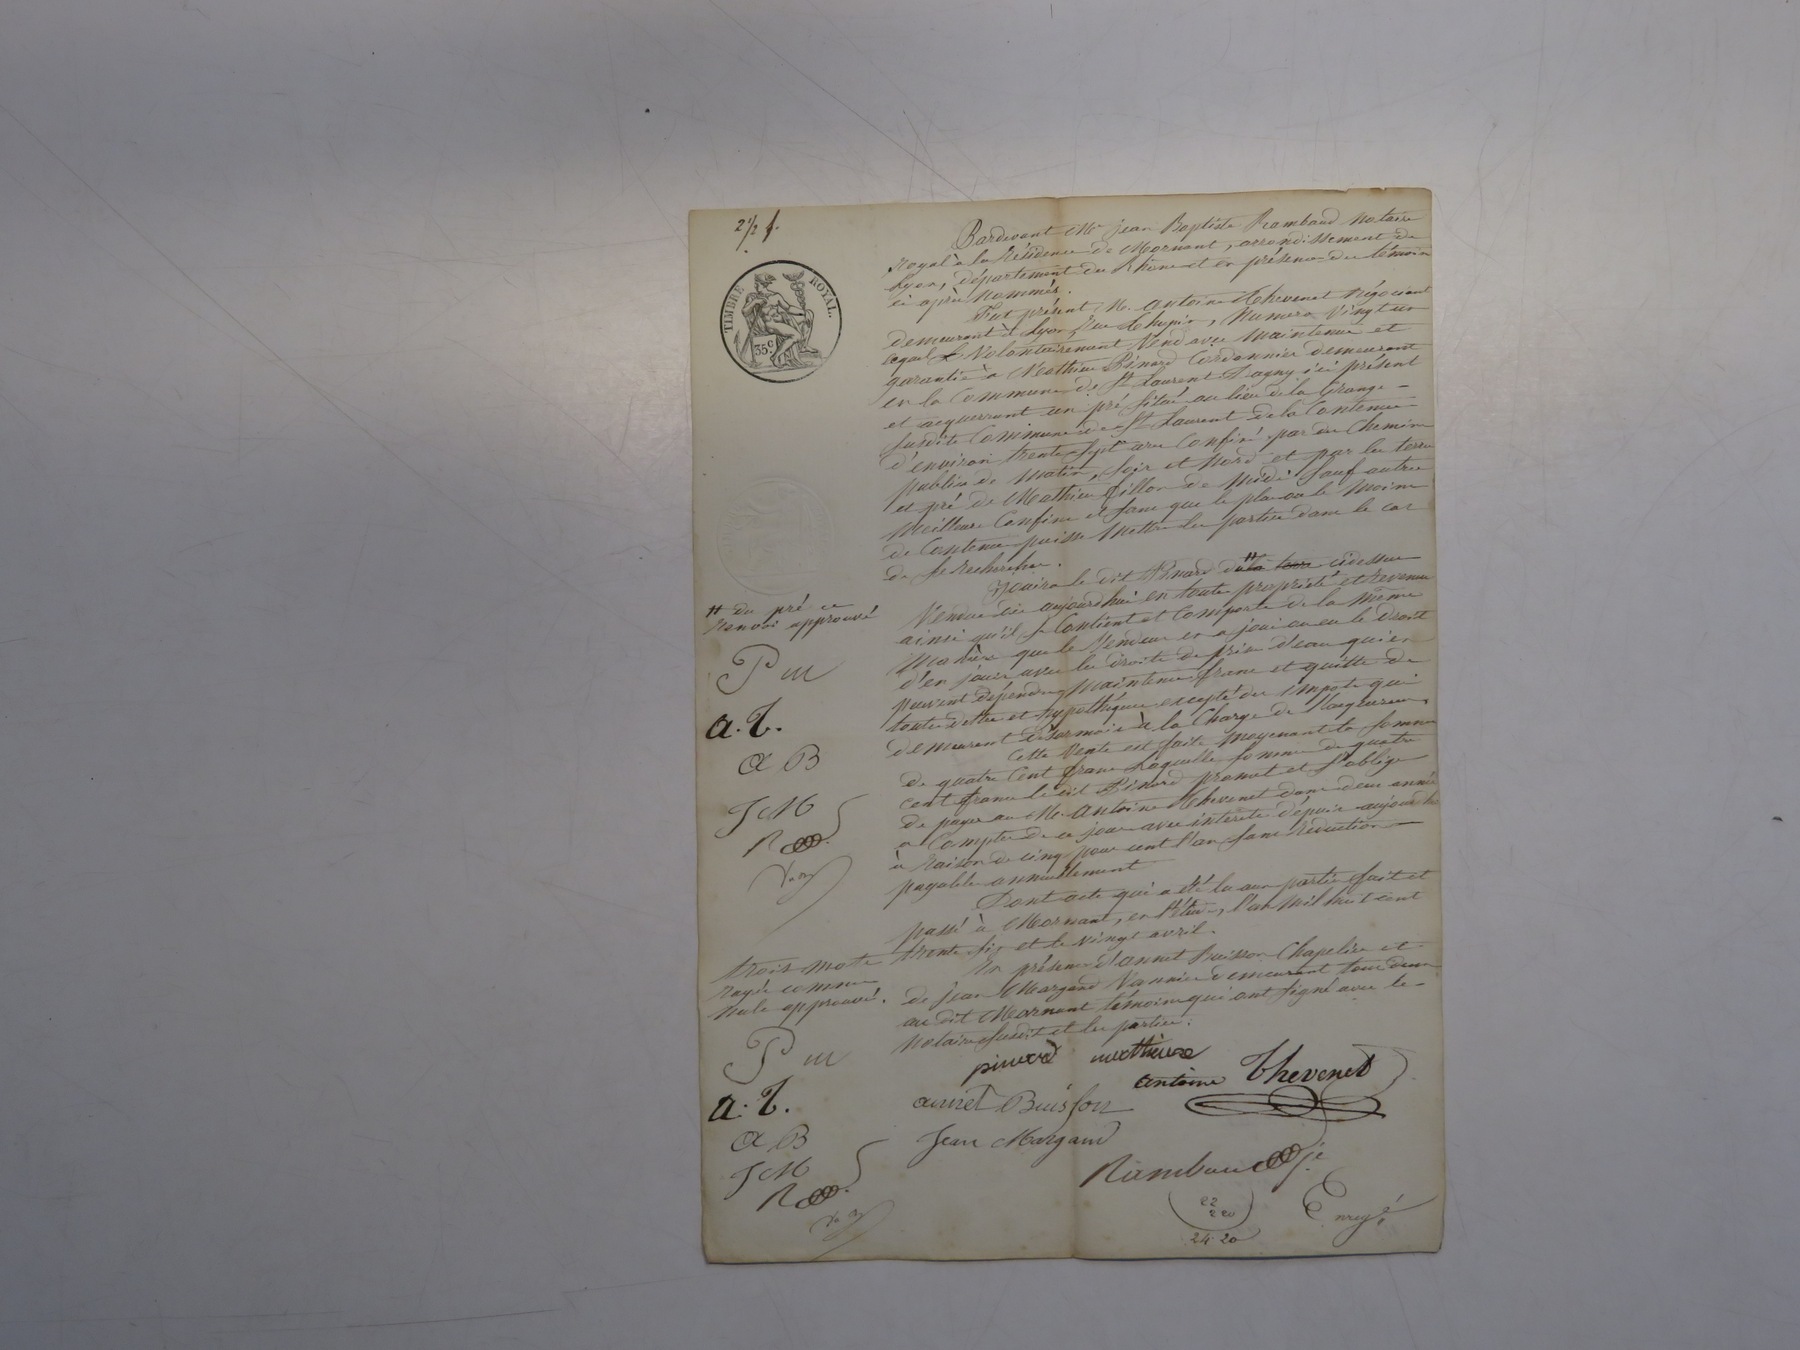 2 1/2 f.
TIMBRE ROYAL.
35 c.
Pardevant Me jean Baptiste Rambaud Notaire
Royal à la Résidence de Mornant, arrondissement de
Lyon, département du Rhône et en présence des témoins
ci après Nommés.
Fut présent M. Antoine Thevenet Négociant
demeurant à Lyon Rue Thupin, Numero vingt un
lequel Volontairement Vend avec Maintenue et
garantie à Mathieu Pinard Cordonnier demeurant
en la Commune de St Laurent Dagny ici présent
et acquerrant un pré situé au lieu de la Grange
susdite Commune de St Laurent de la Contenue
d'environ trente sept ares Confiné par des Chemins
publics de Matin, soir et Nord et par les terre
et pré de Mathieu Fillon de Midi sauf autres
Meilleurs Confins et sans que le plus ou le Moins
de Contenue puisse Mettre les parties dans le cas
de se rechercher.
Jouira le dit Pinard # cidessus
Vendu dès aujourd'hui en toute propriété et Revenus
ainsi qu'il se Contient et Comporte de la même
Manière que le Vendeur en a joui ou eu le droit
d'en jouir avec les droits de prise d'eau qui en
peuvent dépendre, Maintenu franc et quitte de
toute dette et hypothèque excepté des impots qui
demeurent désormais à la Charge de l'acquereur.
Cette Vente est faite Moyenant la somme
de quatre Cent francs laquelle somme de quatre
cent francs le dit Pinard promet et s'oblige
de payer au M. Antoine Thevenet dans deux années
a Compter de ce jour avec intérêts dépuis aujourd'hui
à Raison de cinq pour cent l'an sans Réduction
payable annuellement
Dont acte qui a été lu aux parties fait et
passé à Mornant, en l'étude, l'an Mil huit cent
trente six et le vingt avril.
En présence d'annet Buisson Chapelier et
de Jean Margand Vannier demeurant tous deux
au dit Mornant témoins qui ont signé avec le
Notaire susdit et les parties.
# du pré ce
Renvoi approuvé
P m
a. T.
A B
J M
R
trois mots
rayés comme
Nuls approuvé.
P m
a. T.
A B
J M
R
pinard mathieux
antoine Thevenet
annet Buisson
Jean Margand
Rambaud
22
2 20
24 20
Enregé